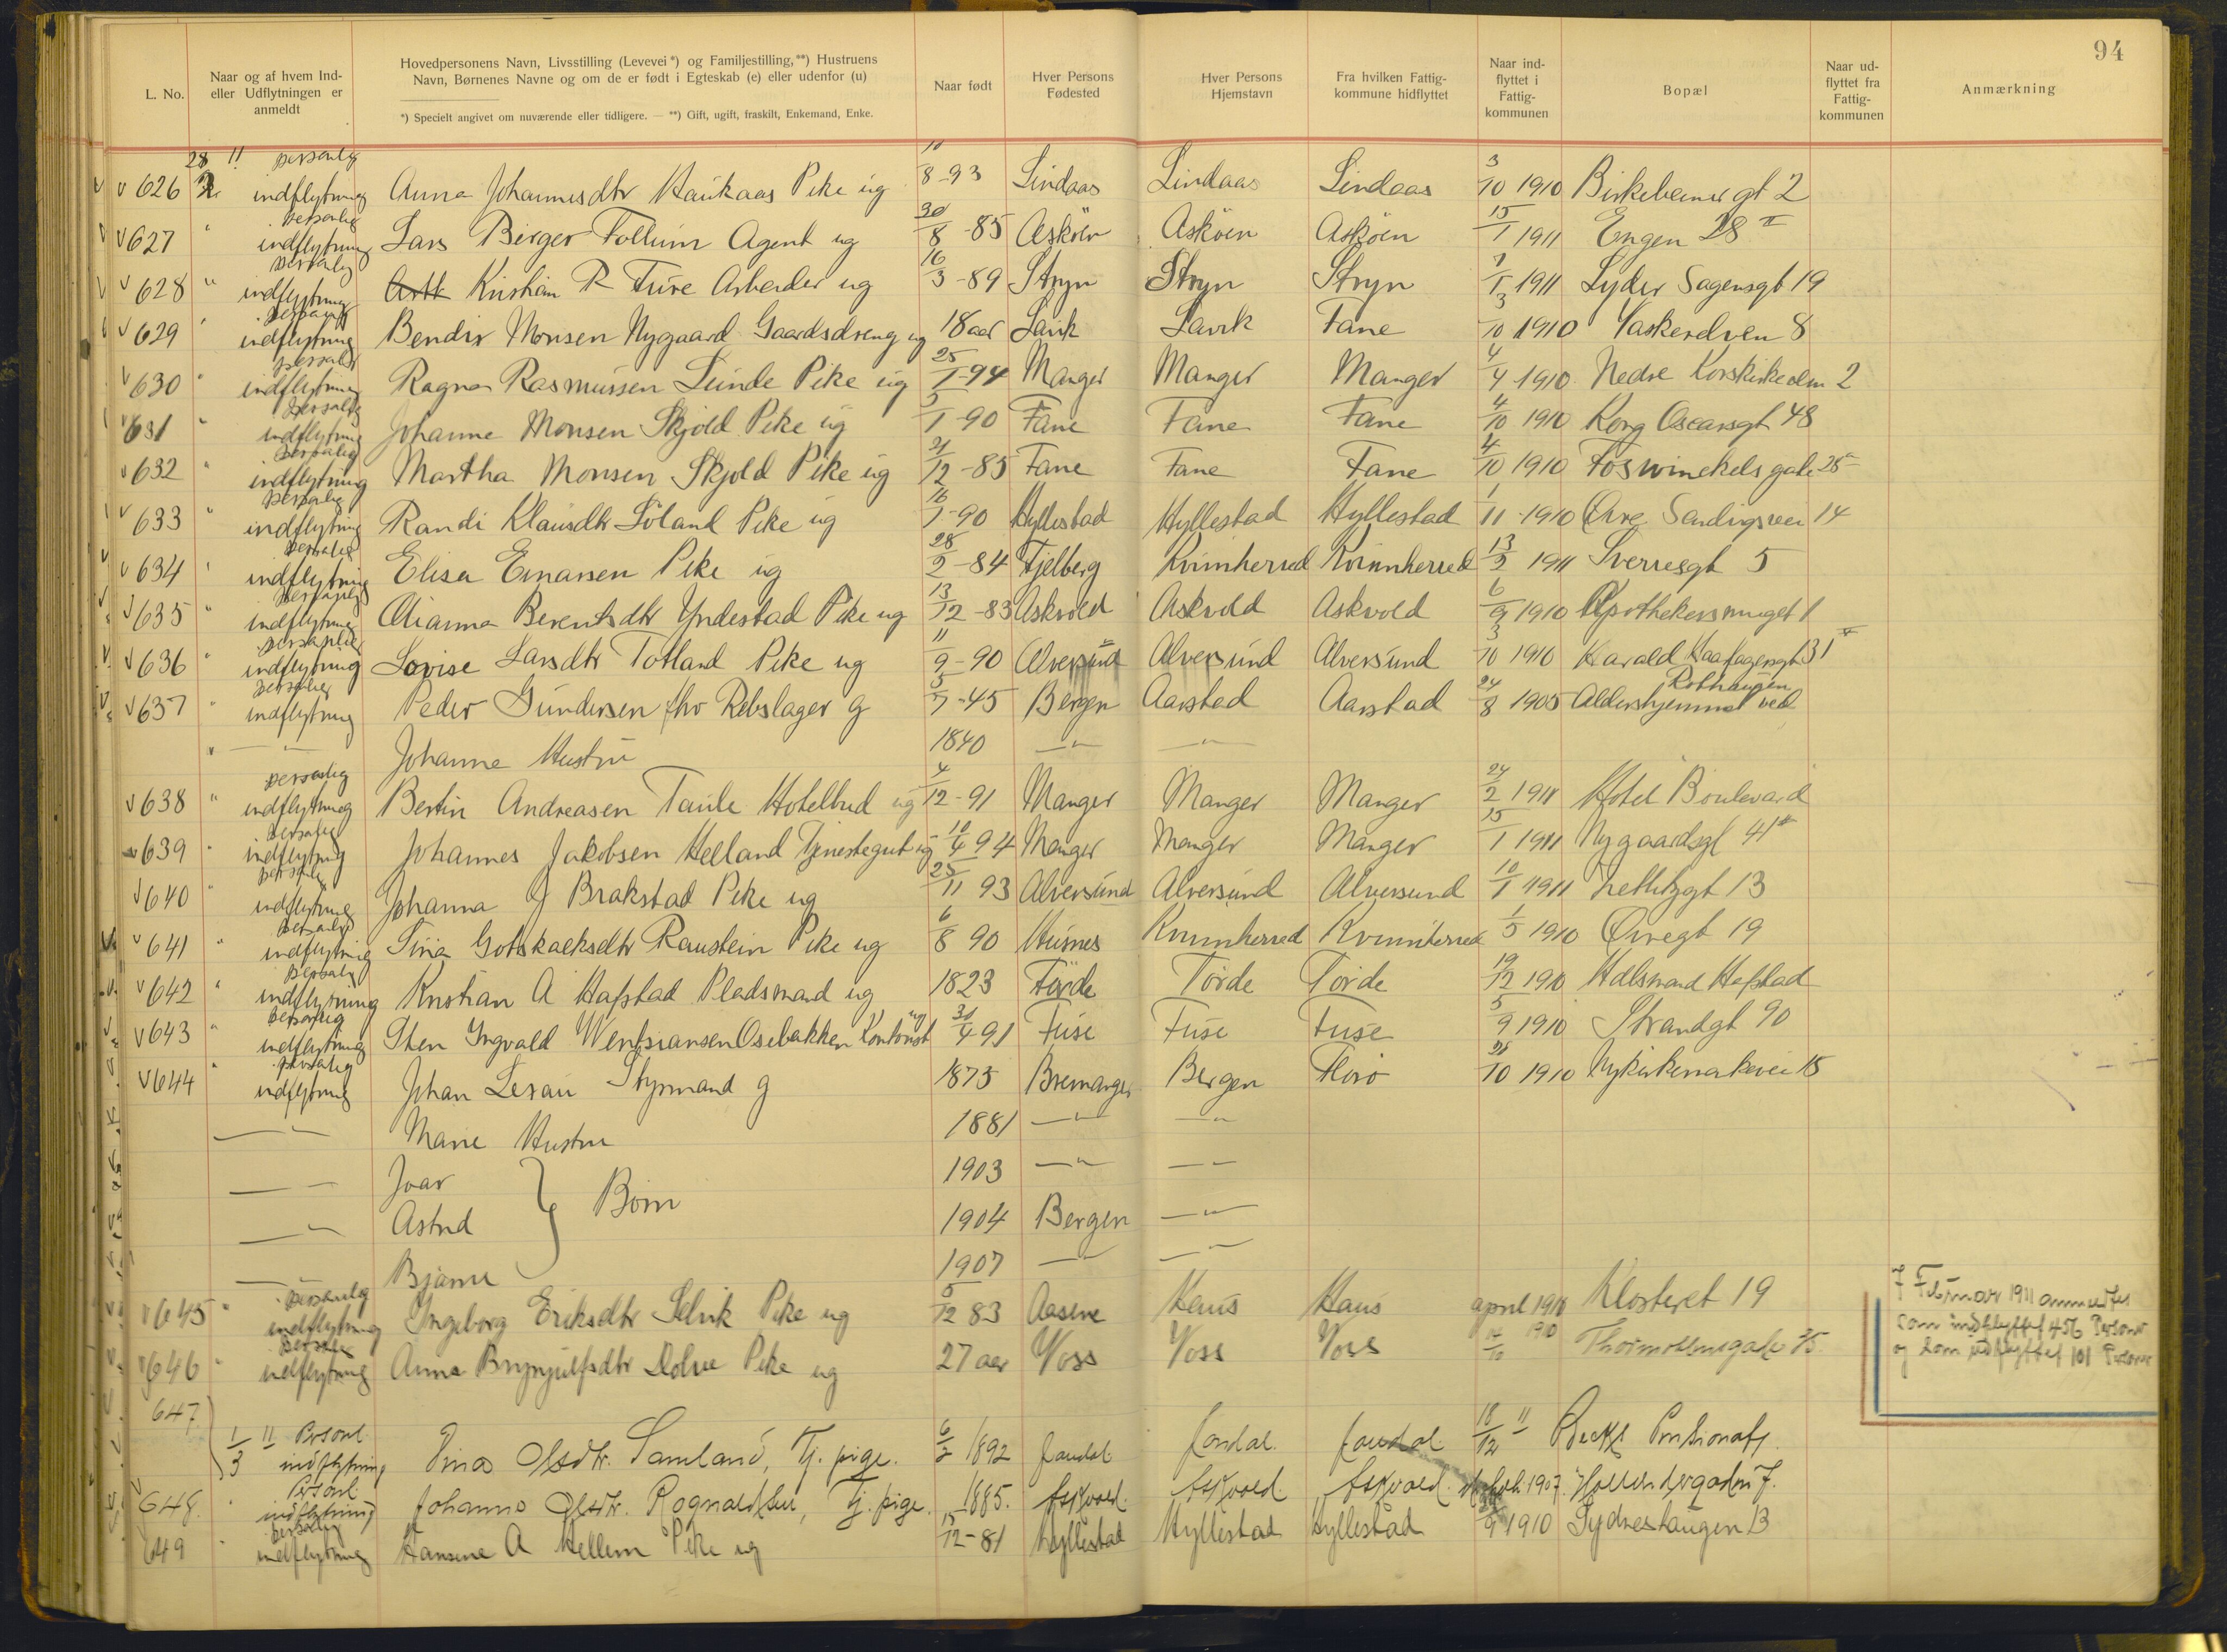 94
L. No.
Naar og af hvem Ind- eller Udflytningen er anmeldt
Hovedpersonens Navn, Livsstilling (Levevei *) og Familjestilling, **) Hustruens Navn, Børnenes Navne og om de er født i Egteskab (e) eller udenfor (u)
*) Specielt angivet om nuværende eller tidligere. — **) Gift, ugift, fraskilt, Enkemand, Enke.
Naar født
Hver Persons Fødested
Hver Persons Hjemstavn
Fra hvilken Fattig- kommune hidflyttet
Naar ind- flyttet i Fattig- kommunen
Bopæl
Naar ud- flyttet fra Fattig- kommunen
Anmærkning
626 28/2 11 personlig indflytning Anna Johannesdtr Haukaas Pike ug 10/8-93 Lindaas Lindaas Lindaas 3/10 1910 Birkebeinergt 2
627 " personlig indflytning Lars Birger Follum Agent ug 30/8-85 Askøen Askøen Askøen 15/1 1911 Engen 28 II
628 " personlig indflytning Kristian R Ture Arbeider ug 16/3-89 Stryn Stryn Stryn 1/1 1911 Lyder Sagensgt 19
629 " personlig indflytning Bendix Monsen Nygaard Gaardsdreng ug 18 aar Lavik Lavik Fane 3/10 1910 Vaskerelven 8
630 " personlig indflytning Ragna Rasmussen Lunde Pike ug 25/1-94 Manger Manger Manger 4/4 1910 Nedre Korskirkealm 2
631 " personlig indflytning Johanne Monsen Skjold Pike ug 5/1-90 Fane Fane Fane 4/10 1910 Kong Oscarsgt 48
632 " personlig indflytning Martha Monsen Skjold Pike ug 21/12-85 Fane Fane Fane 4/10 1910 Foswinckels gate 25
633 " personlig indflytning Randi Klausdtr Løland Pike ug 16/7-90 Hyllestad Hyllestad Hyllestad 1/11-1910 Øvre Sandvigsvei 14
634 " personlig indflytning Elisa Einarsen Pike ug 28/2-84 Fjelberg Kvinnherred Kvinnherred 13/2 1911 Sverresgt 5
635 " personlig indflytning Berentsdtr Yndestad Pike ug 13/12-83 Askvold Askvold Askvold 6/9 1910 Apothekersmuget 1
636 " personlig indflytning Lovise Larsdtr Totland Pike ug 11/9-90 Alversund Alversund Alversund 3/10 1910 Harald Haarfagersgt 31 II
637 " personlig indflytning Peder Gundersen fhv Rebslager g 5/7-45 Bergen Aarstad Aarstad 24/8 1905 Aldershjemmet ved Rothaugen
" — " — Johanne Hustru 1840 — " — — " —
638 " personlig indflytning Bertin Andreasen Taule Hotelbud ug 4/12-91 Manger Manger Manger 24/2 1911 Hotel Boulevard
639 " personlig indflytning Johannes Jakobsen Helland Tjenestegut ug 10/4 94 Manger Manger Manger 15/1 1911 Nygaardsgt 41 II
640 " personlig indflytning Johanna J Brakstad Pike ug 25/11 93 Alversund Alversund Alversund 10/1 1911 13
641 " personlig indflytning Tina Gotskalksdtr Raustein Pike ug 6/8 90 Husnes Kvinnherred Kvinnherred 1/5 1910 Øvregt 19
642 " personlig indflytning Kristian A Hafstad Pladsmand ug 1823 Førde Førde Førde 19/12 1910 Hafstad
643 " personlig indflytning Sten Ingvald Wentsiansen Osebakken Kontorist ug 30/4 91 Fuse Fuse Fuse 5/9 1910 Strandgt 90
644 " personlig indflytning Johan Lesau Styrmand g 1875 Bremanger Bergen Florø 28/10 1910 Nykirkemarkevei 15
— " — Marie Hustru 1881 — " — — " —
— " — Ivar 1903 — " — — " —
— " — Astrid } Børn 1904 Bergen — " —
— " — Bjarne 1907 — " — — " —
645 " personlig indflytning Ingeborg Eriksdtr Selvik Pike ug 5/12 83 Aasene Haus Haus april 1910 Klosteret 19
7 Februar 1911 anmeldtes
som indflyttet 456 Personer
og som udflyttet 101 Personer
646 " personlig indflytning Anna Brynjulfsdtr Dolve Pike ug 27 aar Voss Voss Voss 14/10 1910 Thormøhlensgate 35
647 1/3 11 Personl. indflytning Olsdtr. Samland, Tj. pige. 6/2 1892 Jondal Jondal. Jondal 18/12 11 Pensionat
648. " Personl. indflytning Johanna Olsdtr. Rognaldsen, Tj. pige. 1885. Askvold. Askvold. Askvold. 1907. Hollendergaden 7.
649 personlig indflytning Hansine A Hellem Pike ug 15/12-81 Hyllestad Hyllestad Hyllestad 1910 Sydneshaugen 13